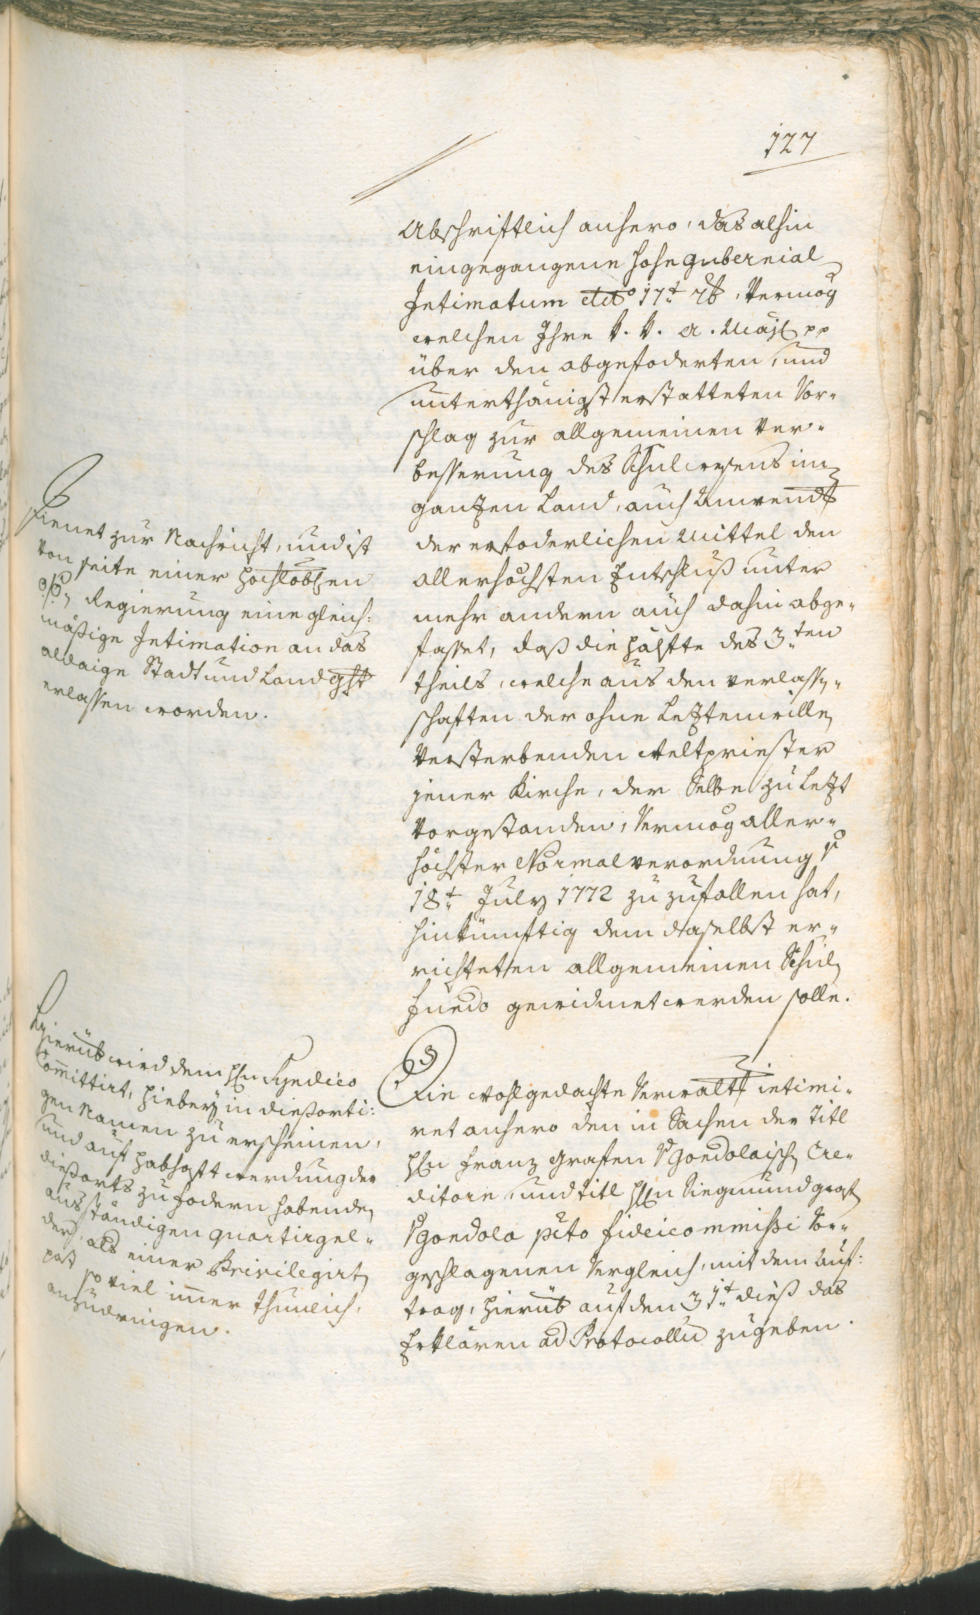 127
Abschriftlich anhero, das alhin
eingegangene hohe Gubernial
Intimatum ddto 17t 7b, Vermög
welchen Ihre k. k. a. Majt pp
über den abgeforderten, und
unterthänigst erstatteten Vor-
schlag zur allgemeinen Ver-
besserung des Schulwesens im
gantzen Land, auch Anwendt
der erforderlichen Mittel den
allerhöchsten Entschluß unter
mehr andern auch dahin abge-
fasset, daß die Hälfte des 3.ten
theils, welche aus den verlass-
schaften der ohne Letztenwille
Versterbenden Weltpriester
jener Kirche, der Selbe zu Letzt
Vorgestanden, Vermög aller-
höchster Normalverordnung
18t July 1772 zuzufallen hat,
hinkünftig dem daselbst er-
richteten allgemeinen Schul
Fundo gewidmet werden solle.
Dienet zur Nachricht, und ist
Von seite einer Hochlöbl
Regierung eine gleich:
mäßige Intimation an das
aldaige Stadt und Land
erlassen worden.
Ein wohlgedachte Verwaltt intimi-
ret anhero den in Sachen der Titl
Hln Franz Grafen v Gondolaisch Cre-
ditorn, und Titl Hln Siegmund Graf
v Gondola pcto fideicommissi Vor-
geschlagenen Vergleich, mit dem Auf:
trag, hierüb auf den 31t dieß das
Erklären ad Protocollu zugeben.
Hierüb wird dem Hln Syndico
Committirt, hiebey in dießorti:
gen Namen zu erscheinen,
und auf habhaft werdung der
dießorts zu fodern habende
ausständigen quartirgel-
der, als einer Privilegirt
post so viel imer thunlich,
anzudringen.